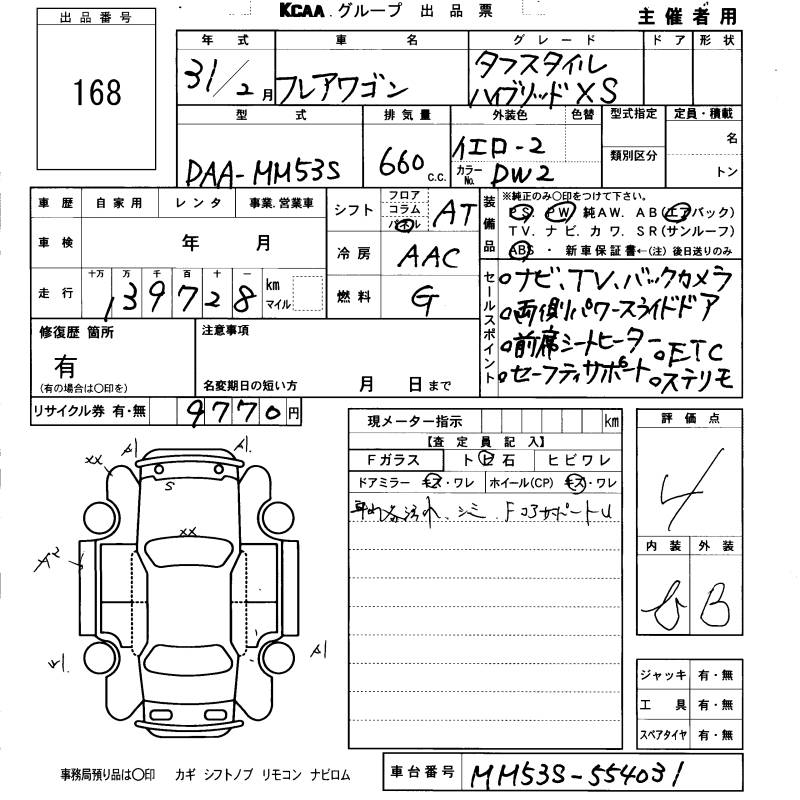 KCAA グループ 出品票
主催者用
出品番号
168
年式 車名 グレード ドア 形状
31/2月 フレアワゴン タフスタイル
ハイブリッドXS
型式 排気量 外装色 色替 型式指定 定員・積載
DAA-MM53S 660 C.C. イエロ-2 名
類別区分
カラーNo. DW2 トン
車歴 自家用 レンタ 事業.営業車
シフト フロア コラム パネル AT
装備品 ※純正のみ〇印をつけて下さい。
PS. PW. 純AW. AB(エアバック)
TV. ナビ. カワ. SR(サンルーフ)
ABS ・ 新車保証書←(注) 後日送りのみ
車検 年 月
冷房 AAC
走行 十万 万 千 百 十 一
139728 km マイル
燃料 G
セールスポイント
ナビ、TV、バックカメラ
両側パワースライドドア
前席シートヒーター
ETC
セーフティサポート
ステリモ
修復歴 箇所
有
(有の場合は〇印を)
注意事項
名変期日の短い方 月 日まで
リサイクル券 有・無 9770円
現メーター指示 km
【査定員記入】
Fガラス トビ石 ヒビワレ
ドアミラー キズ・ワレ ホイール(CP) キズ・ワレ
シミ
評価点
4
内装 外装
B
xx A1 A1
S
xx
A2
A1
ジャッキ 有・無
工具 有・無
スペアタイヤ 有・無
事務局預り品は〇印 カギ シフトノブ リモコン ナビロム
車台番号 MM53S-554031